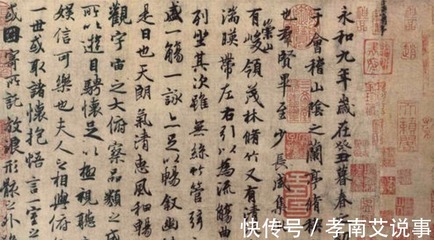 永和九年歲在癸丑暮春
于會稽山陰之蘭亭脩
也羣賢畢至少長咸集
崇山
有峻領茂林脩竹又有清
湍暎帶左右引以為流觴曲
列坐其次雖無絲竹管弦
盛一觴一詠上足以暢敘幽
是日也天朗氣清惠風和暢
觀宇宙之大俯察品類之盛
所以遊目騁懷足以極視聽
娛信可樂也夫人之相與俯
一世或取諸懷抱悟言一室之
或因寄所託放浪形骸之外
快传号/孝南艾说事